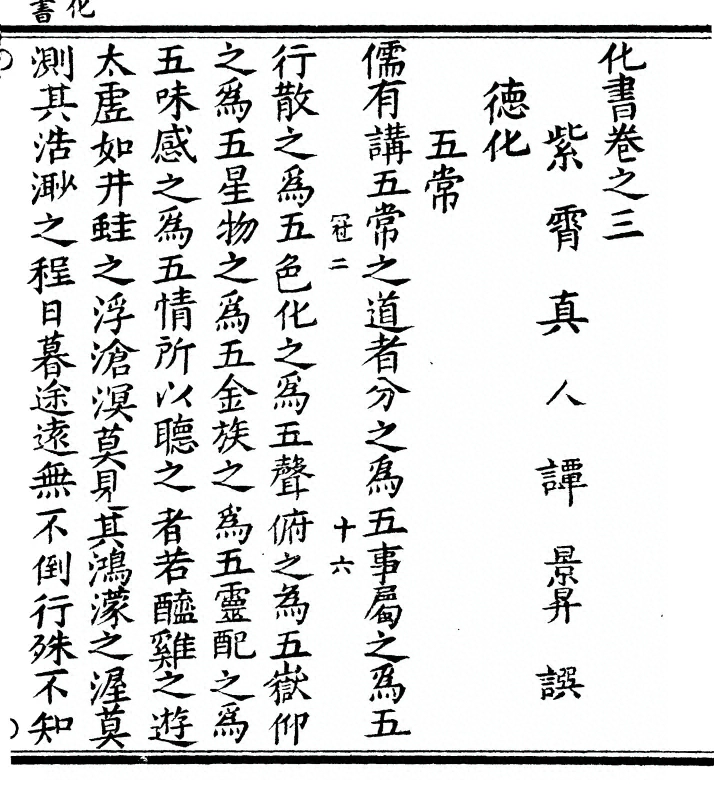 化書卷之三
紫霄真人譚景昇譔
德化
五常
儒有講五常之道者分之爲五事屬之爲五
冠二 十六
行散之爲五色化之爲五聲俯之為五嶽仰
之爲五星物之爲五金族之爲五靈配之爲
五味感之爲五情所以聽之者若醯雞之遊
太虛如井蛙之浮滄溟莫見其鴻濛之涯莫
測其浩渺之程日暮途遠無不倒行殊不知
化書